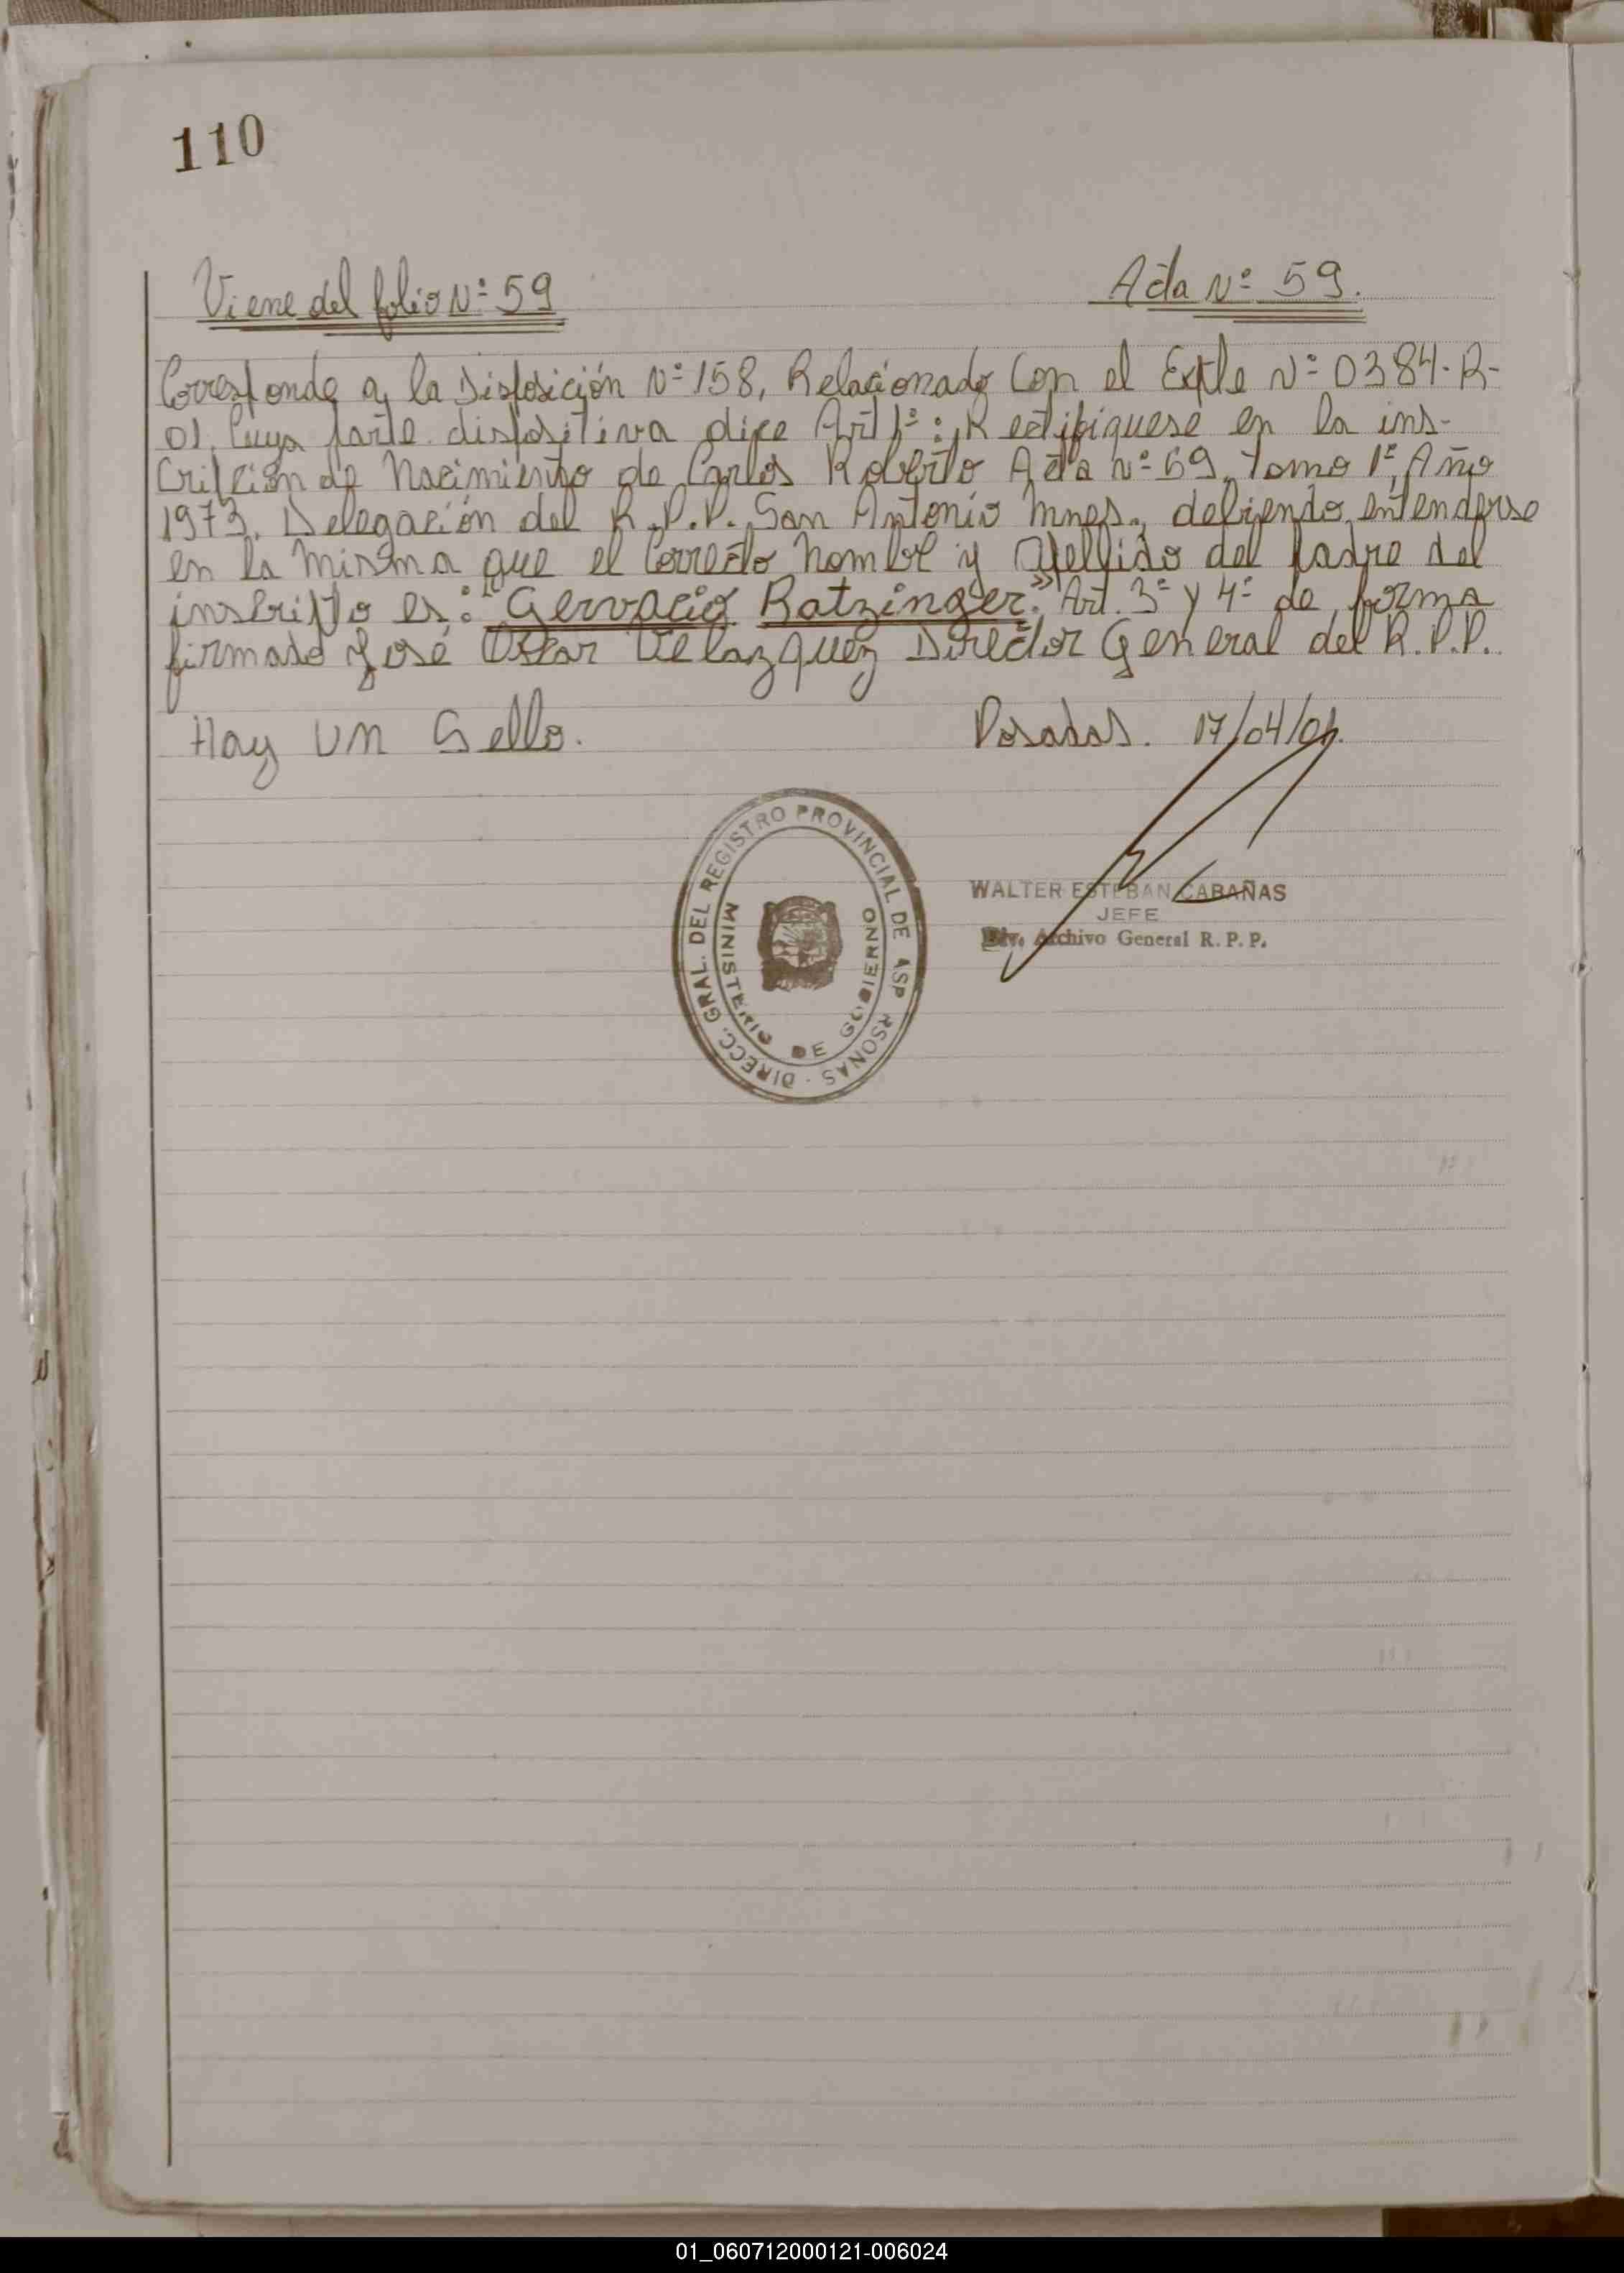 110
Viene del folio Nº 59
Acta Nº 59.
Corresponde a la Disposición Nº 158, Relacionado Con el Expte Nº 0384-R-
01, Cuya parte dispositiva dice Art 1º: Rectifiquese en la ins-
Cripción de Nacimiento de Carlos Roberto Acta Nº 59, Tomo 1º, Año
1973, Delegación del R.P.P. San Antonio Mnes., debiendo entenderse
en la Misma que el Correcto Nombre y Apellido del padre del
inscripto es: "Gervacio Ratzinger". Art. 3º y 4º de forma
firmado José Oscar Velazquez Director General del R.P.P.
Hay un Sello.
Posadas. 17/04/01.
DIRECC. GRAL. DEL REGISTRO PROVINCIAL DE ASP RSONAS
MINISTERIO DE GOBIERNO
WALTER ESTEBAN CABAÑAS
JEFE
Div. Archivo General R. P. P.
01_060712000121-006024